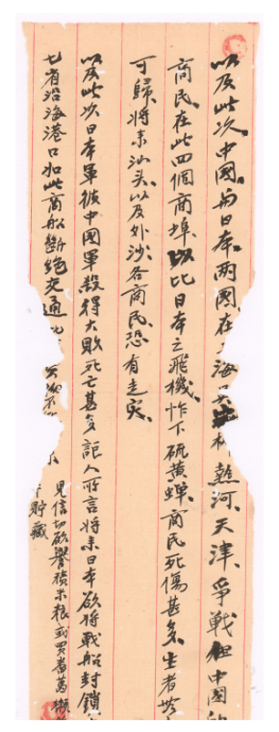 以及此次、中國、与日本、兩國、在 海 熱河、天津、爭戰、但中國
商民、在此四個商埠、以比日本之飛機、怍下硫黄蟬、商民死傷甚多、生者
可歸、将来汕头、以及外沙、各商民、恐有走災、
以及此次日本軍被中國軍殺得大敗死亡甚多記人所言将来日本欲将戰船封鎖
七省沿海港口如此商船斷絕交通 見信切欲 積米粮或买番葛
貯藏